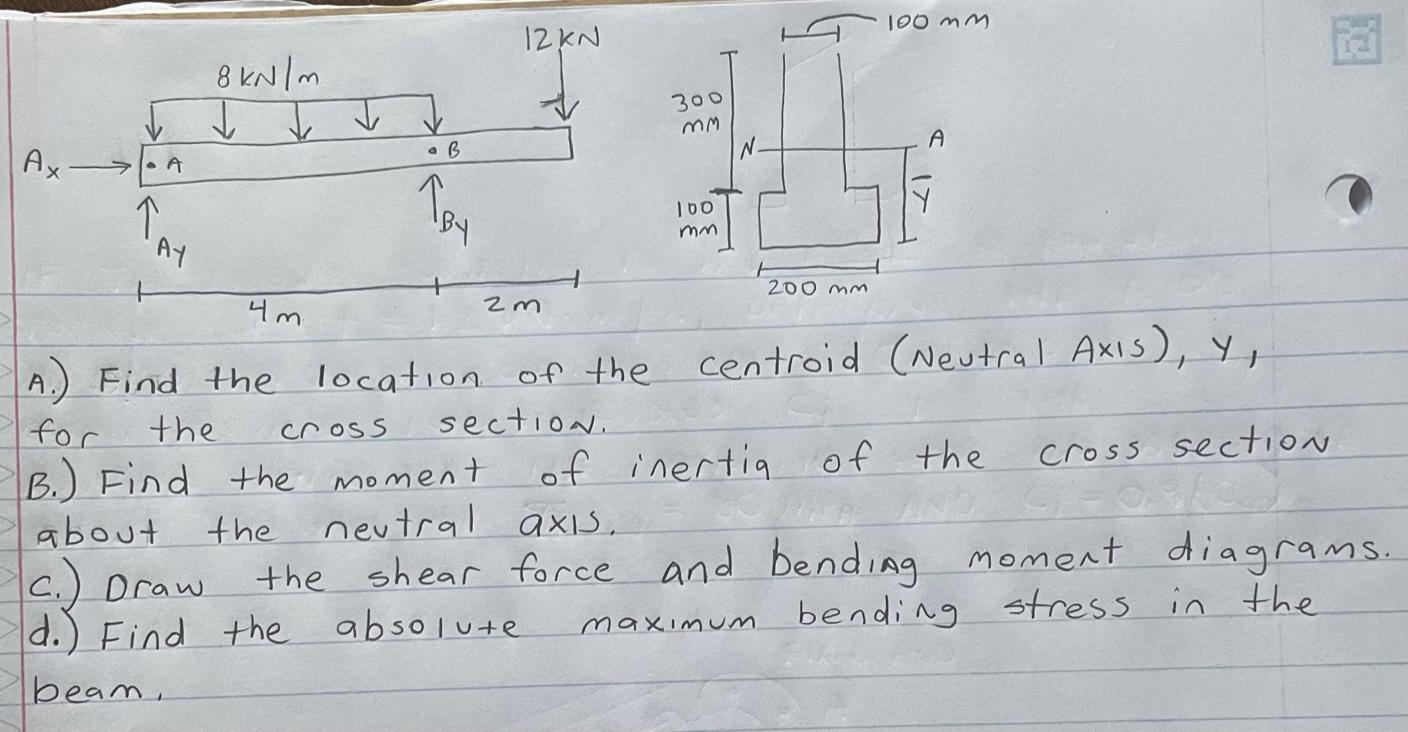 12 KN
100 mm
8 KN/m
300
mm
N
A
Ax
A
B
Y
100
mm
By
Ay
200 mm
4 m
2 m
A.) Find the location of the centroid (Neutral Axis), Y,
for the cross section.
B.) Find the moment of inertia of the cross section
about the neutral axis.
C.) Draw the shear force and bending moment diagrams.
d.) Find the absolute maximum bending stress in the
beam.